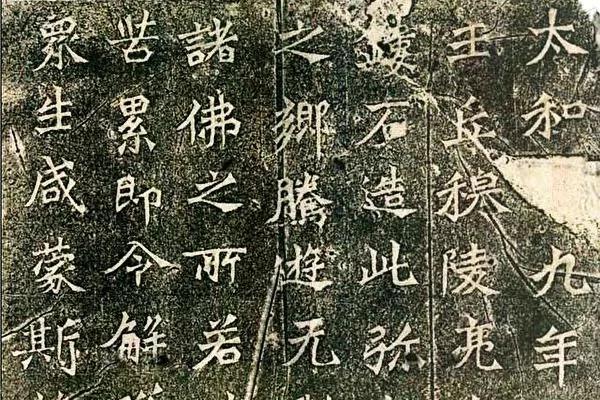 太和九年
王丘穆陵亮
鏤石造此弥
之鄉騰遊无
諸佛之所若
苦累即令解
眾生咸蒙斯